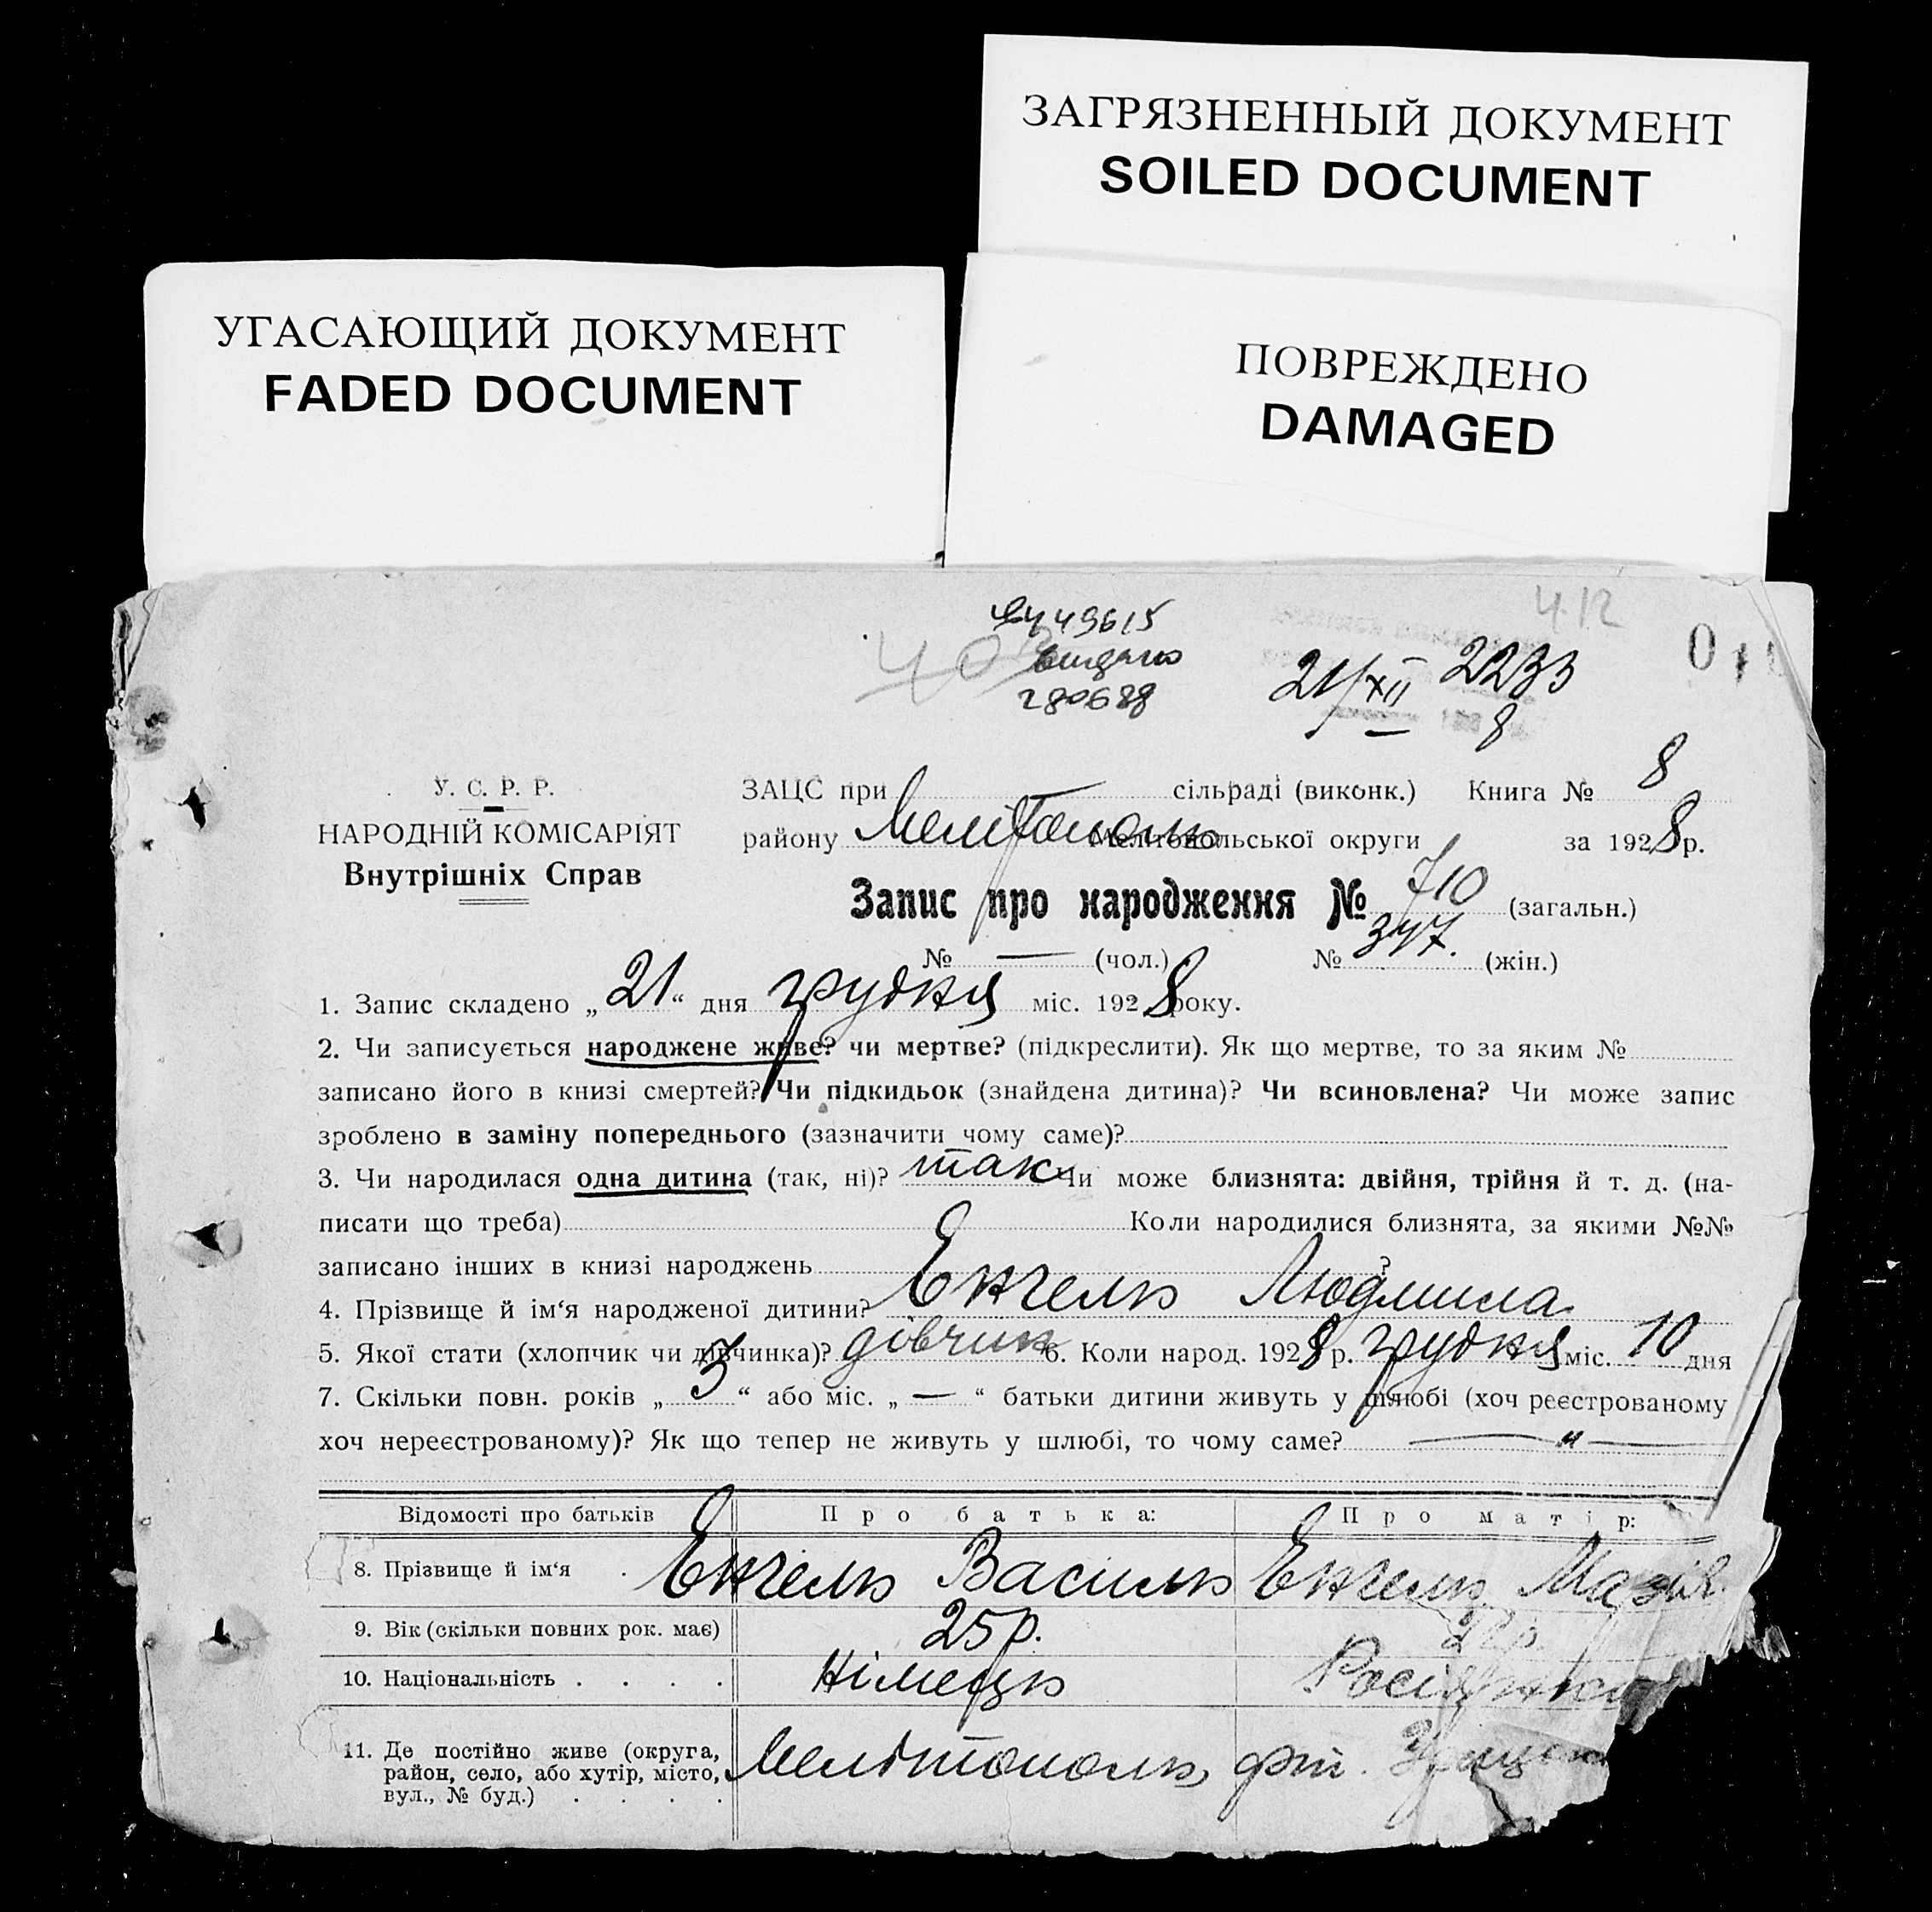 ЗАГРЯЗНЕННЫЙ ДОКУМЕНТ
SOILED DOCUMENT
УГАСАЮЩИЙ ДОКУМЕНТ
FADED DOCUMENT
ПОВРЕЖДЕНО
DAMAGED
412
449615
видано
280688
21/XII 2233
8
У. С. Р. Р.
НАРОДНІЙ КОМІСАРІЯТ
Внутрішніх Справ
ЗАЦС при сільраді (виконк.) Книга № 8
району Мелітополь Мелітопольської округи за 1928 р.
Запис про народження № 710 (загальн.)
№ — (чол.) № 347. (жін.)
1. Запис складено „21“ дня грудня міс. 1928 року.
2. Чи записується народжене живе? чи мертве? (підкреслити). Як що мертве, то за яким №
записано його в книзі смертей? Чи підкидьок (знайдена дитина)? Чи всиновлена? Чи може запис
зроблено в заміну попереднього (зазначити чому саме)?
3. Чи народилася одна дитина (так, ні)? так Чи може близнята: двійня, трійня й т. д. (на-
писати що треба) Коли народилися близнята, за якими №№
записано інших в книзі народжень ?
4. Прізвище й ім‘я народженої дитини? Енгель Людмила
5. Якої стати (хлопчик чи дівчинка)? дівчин 6. Коли народ. 1928 р. грудня міс. 10 дня
7. Скільки повн. років „3“ або міс. „—“ батьки дитини живуть у шлюбі (хоч реєстрованому
хоч нереєстрованому)? Як що тепер не живуть у шлюбі, то чому саме? — „ —
Відомості про батьків Про батька: Про матір:
8. Прізвище й ім‘я . Енгель Василь Енгель Марія
9. Вік (скільки повних рок. має) 25 р. 22 р.
10. Національність . . . . Німець Росіянка
11. Де постійно живе (округа,
район, село, або хутір, місто,
вул., № буд.) . . . .
Мелітополь